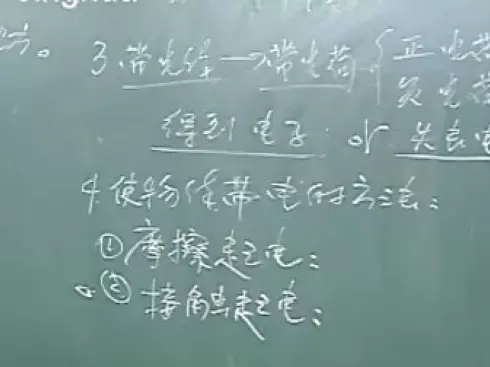 3. 带电体→带电荷{正电荷
负电荷
得到电子 or 失去电
4. 使物体带电的方法:
①摩擦起电:
②接触起电: